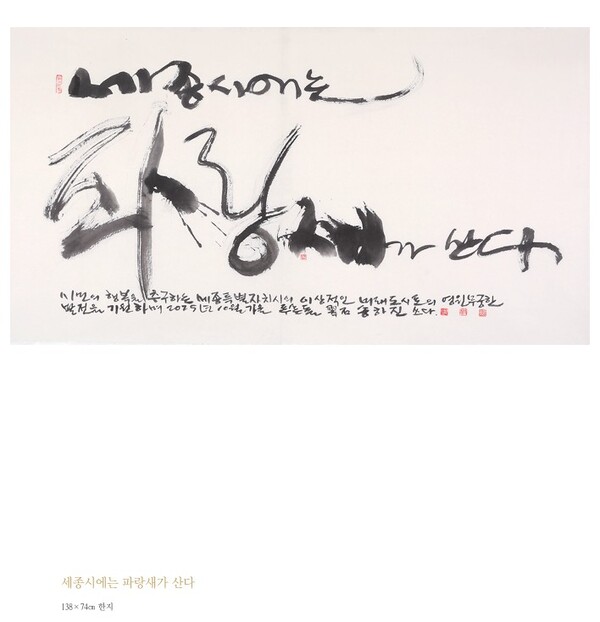 세종시에는
파랑새가 산다
시민의 행복을 추구하는 세종특별자치시의 이상적인 미래도시로의 영원무궁한
발전을 기원하며 2025년 10월 가을 푸른돌 취석 송하진 쓰다.
세종시에는 파랑새가 산다
138×74㎝ 한지